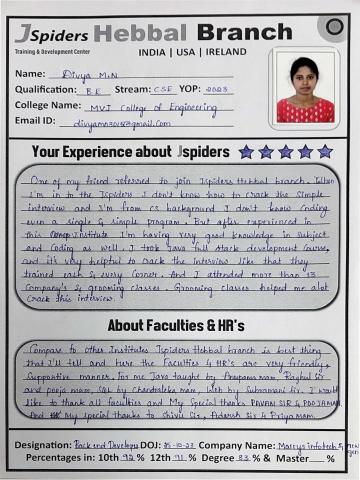 JSpiders Hebbal Branch
Training & Development Center
INDIA | USA | IRELAND
Name: Divya M.N
Qualification: B.E Stream: CSE YOP: 2023
College Name: MVJ College of Engineering
Email ID:
Your Experience about Jspiders
One of my friend referred to join Jspiders Hebbal branch. When
I'm in to the Jspiders I don't know how to crack the simple
interview and I'm from cs background I don't know Coding
even a single & simple program. But after experienced in
this Institute I'm having very good knowledge in Subject
and Coding as well. I took Java full stack development course,
and it's very helpful to crack the interview like that they
trained each & every Corner. And I attended more than 13
Company's & grooming classes. Grooming classes helped me alot
Crack this interview.
About Faculties & HR's
Compare to other Institutes Jspiders Hebbal branch is best thing
that I'll tell and here the Faculties & HR's are very friendly,
Supportive manner. For me Java taught by Anupama mam, Raghul sir
and pooja mam, SQL by Chandraleka mam, web by Subramani Sir. I would
like to thank all faculties and My Special thanks PAVAN SIR & POOJA MAM
And My Special thanks to Shivu Sir, Adarsh Sir & Priya mam.
Designation: Back end Developer DOJ: 25-10-23 Company Name: Marcys infotech &
Percentages in: 10th 92 % 12th 91 % Degree 83 % & Master %